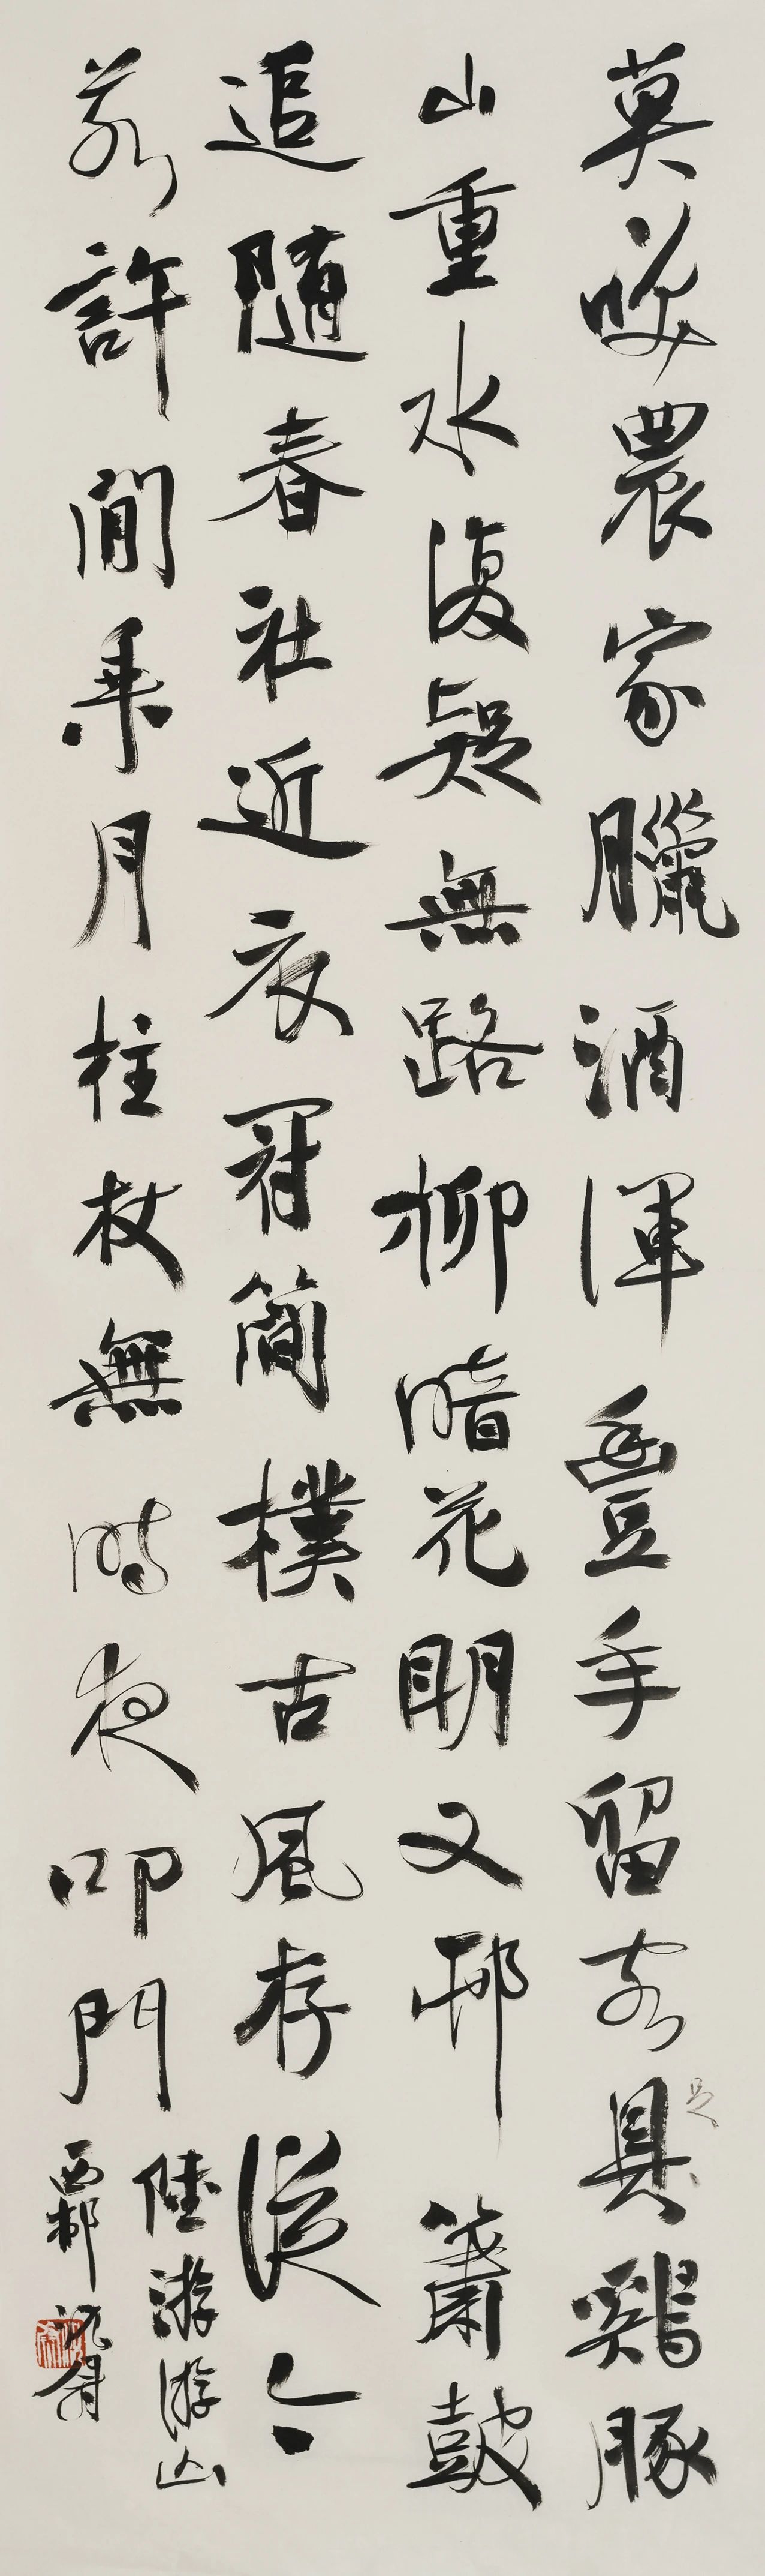 莫咲農家臘酒渾豐年留客具足鷄豚
山重水復疑無路柳暗花明又邨簫鼓
追隨春社近衣冠簡樸古風存從今
若許閒乘月柱杖無時夜叩門
陸游游山
西邨